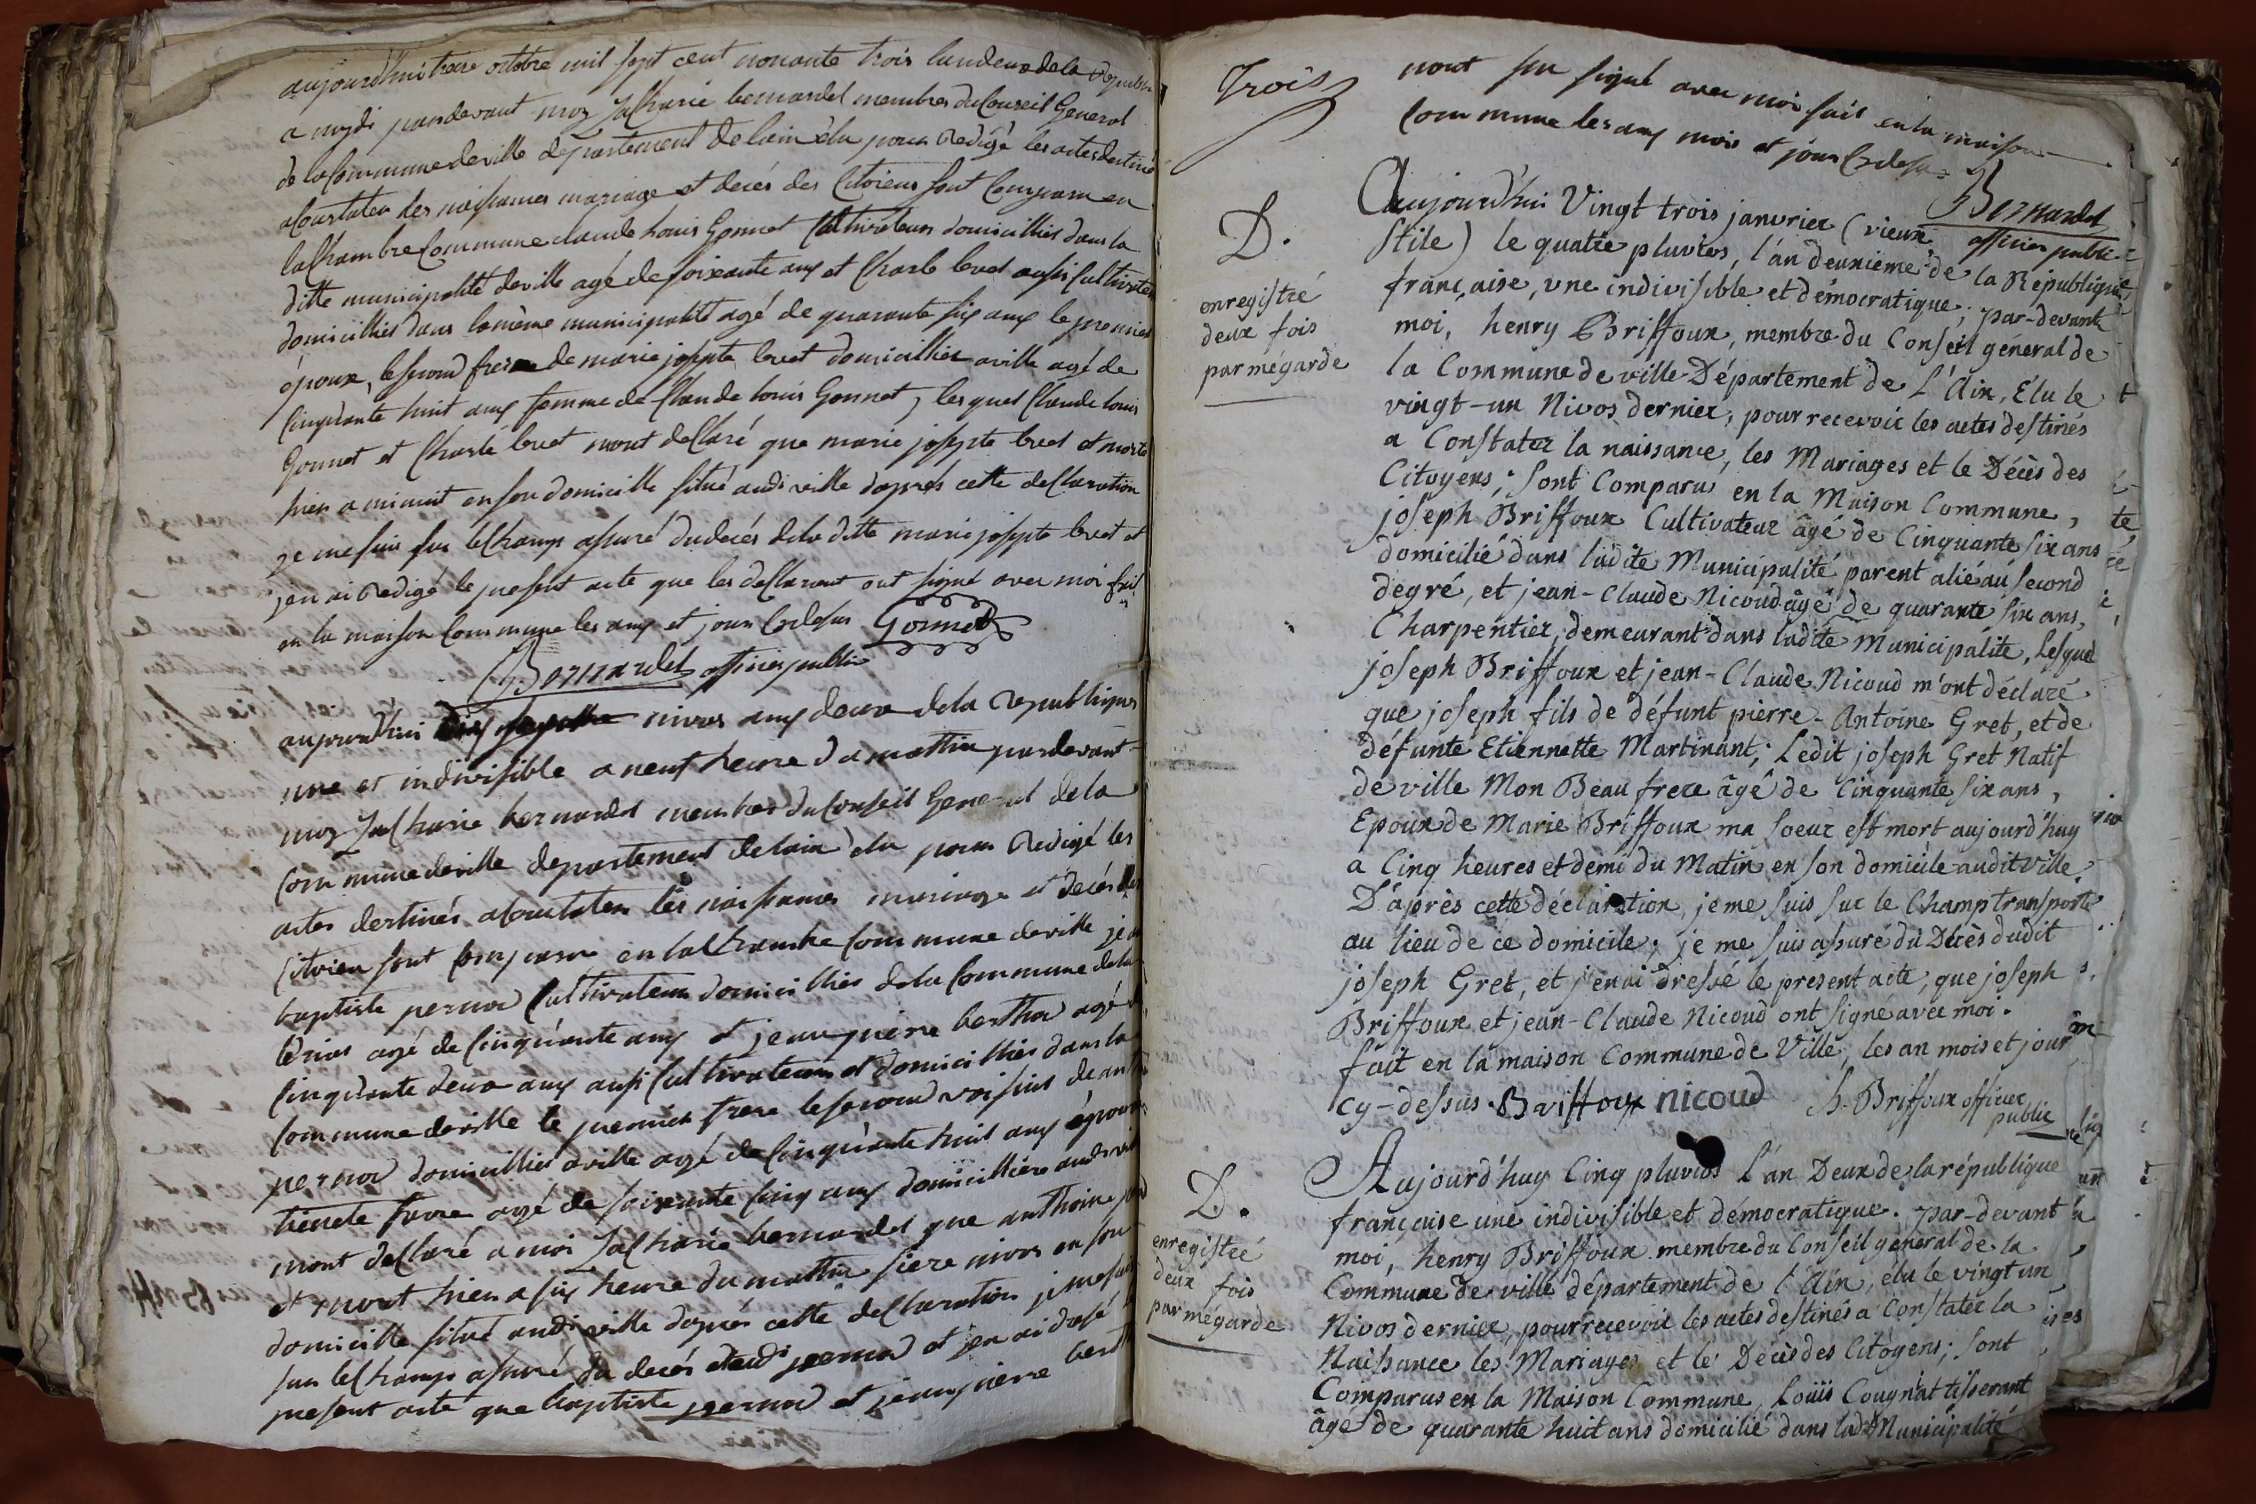 aujourdhui treize octobre mil sept cent nonante trois landeux de la Republi
a mydi pardevant moy Zacharie bernardet membres du Conseil General
de la Commune deville departement de lain élu pour Redigé les actes destiné
aConstater les naissances mariage et decés des Citoiens sont Comparu en
laChambre Commune claude louis Gonnet Cultivateur domicilliés dans la
ditte municipalité deville agé de soixante ans et Charle bret aussi Cultivateur
domicilliés dans la même municipalité agé de quarante six ans le premier
époux, le second frere de marie josepte bret domicilliée aville agé de
Cinquante huit ans femme de Claude louis Gonnet, lesquel Claude louis
Gonnet et Charle bret mont déClaré que marie josepte bret et morte
hier a minuit en son domicille situé audi ville dapprés cette deClaration
je me suis sur leChamp assuré du decés de la ditte marie josepte bret et
jen ai Redigé le present acte que les deClarent ont signé avec moi fait
en la maison Commune les ans et jour Cidesus Gonnet
Bernardet officier public
aujourdhui nivos ans deux de la Republique
une et indivisible a neuf heure du mattin pardevant
moy Zacharie bernardet membres du Conseil General de la
Commune deville departement delain élu pour Redigé les
actes destinés aConstater les naissances mariage et decés des
Citoien sont Comparu en la Chambre Commune deville jean
baptiste pernod Cultivateur domicilliés de la Commune de la
agé de Cinquante ans et jean pierre berthod agé
Cinquante deux ans aussi Cultivateur et domicilliés dans la
Commune deville le premier frere le second voisins de
pernod domicilliés aville agé de Cinquante huit ans époux
tienete favre agé de soixante Cinq ans domicilliére audi ville
mont deClaré a moi Zacharie bernardet que anthoine
et mort hier a six heure du mattin nivos en son
domicille situé audi ville daprés cette deClaration je me suis
sur leChamp assuré du decés dudi pernod et jen ai dresé
present acte que baptiste pernod et jean pierre berth
Trois
nont su signé avec moi fait en la maison
Commune les ans mois et jour Cidesu
Bernardet
officier public
D.
enregistré
deux fois
par mégarde
Aujourd'hui Vingt trois janvrier (vieux
Stile) le quatre pluvios, l'an deuxieme de la Républiqe
française, une indivisible et démocratique; par-devant
moi, henry Briffoux, membre du Conseil general de
la Commune de ville Département de L'Ain, Elu le
vingt-un Nivos dernier, pour recevoir les actes destinés
a Constater la naissance, les Mariages et le Décès des
Citoyens; Sont Comparus en la Maison Commune,
joseph Briffoux Cultivateur âgé de Cinquante six ans
domicilié dans ladite Municipalité parent alié au second
degré, et jean-Claude Nicoud âgé de quarante six ans,
Charpentier, demeurant dans ladite Municipalité, Lesquel
joseph Briffoux et jean-Claude Nicoud m'ont déclaré
que joseph fils de défunt pierre-Antoine Gret, et de
défunte Etiennette Martinant; Ledit joseph Gret Natif
de ville Mon Beau frere âgé de Cinquante six ans,
Epoux de Marie Briffoux ma soeur est mort aujourd'huy
a Cinq heures et demi du Matin en son domicile audit ville
D'après cette déclaration, je me suis sur le Champ transporté
au lieu de ce domicile; je me suis assuré du Décès dudit
joseph Gret, et j'en ai dressé le present acte, que joseph
Briffoux et jean-Claude Nicoud ont signé avec moi.
fait en la maison Commune de Ville, les an mois et jour
cy-dessus. Briffoux nicoud h. Briffoux officier
public
D.
enregistré
deux fois
par mégarde
Aujourd'huy Cinq pluvios L'an Deux de la république
française une indivisible et démocratique. par-devant
moi, henry Briffoux membre du Conseil general de la
Commune de ville département de l'Ain, élu le vingt un
Nivos dernier, pour recevoir les actes destinés a Constater la
Naissance les Mariages et le Décès des Citoyens; sont
Comparus en la Maison Commune, Louis Cougnat tisserant
âgé de quarante huit ans domicilié dans lade Municipalité